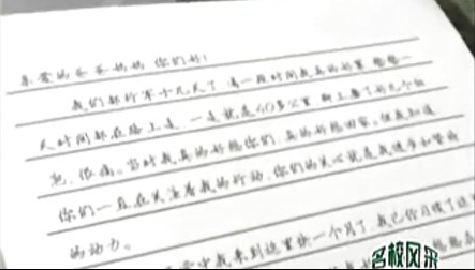 亲爱的爸爸妈妈 你们好！
我们都行军十几天了 这一段时间我真的好累 整整一
天时间都在路上走，一走就是40多公里 脚上磨了好几个水
泡，很痛。当时我真的好想你们，真的好想回家。但我知道
你们一直在关注着我的行动，你们的关心就是我进步和坚持
的动力。
来到这里快一个月了，我已经习惯了这
名校风采